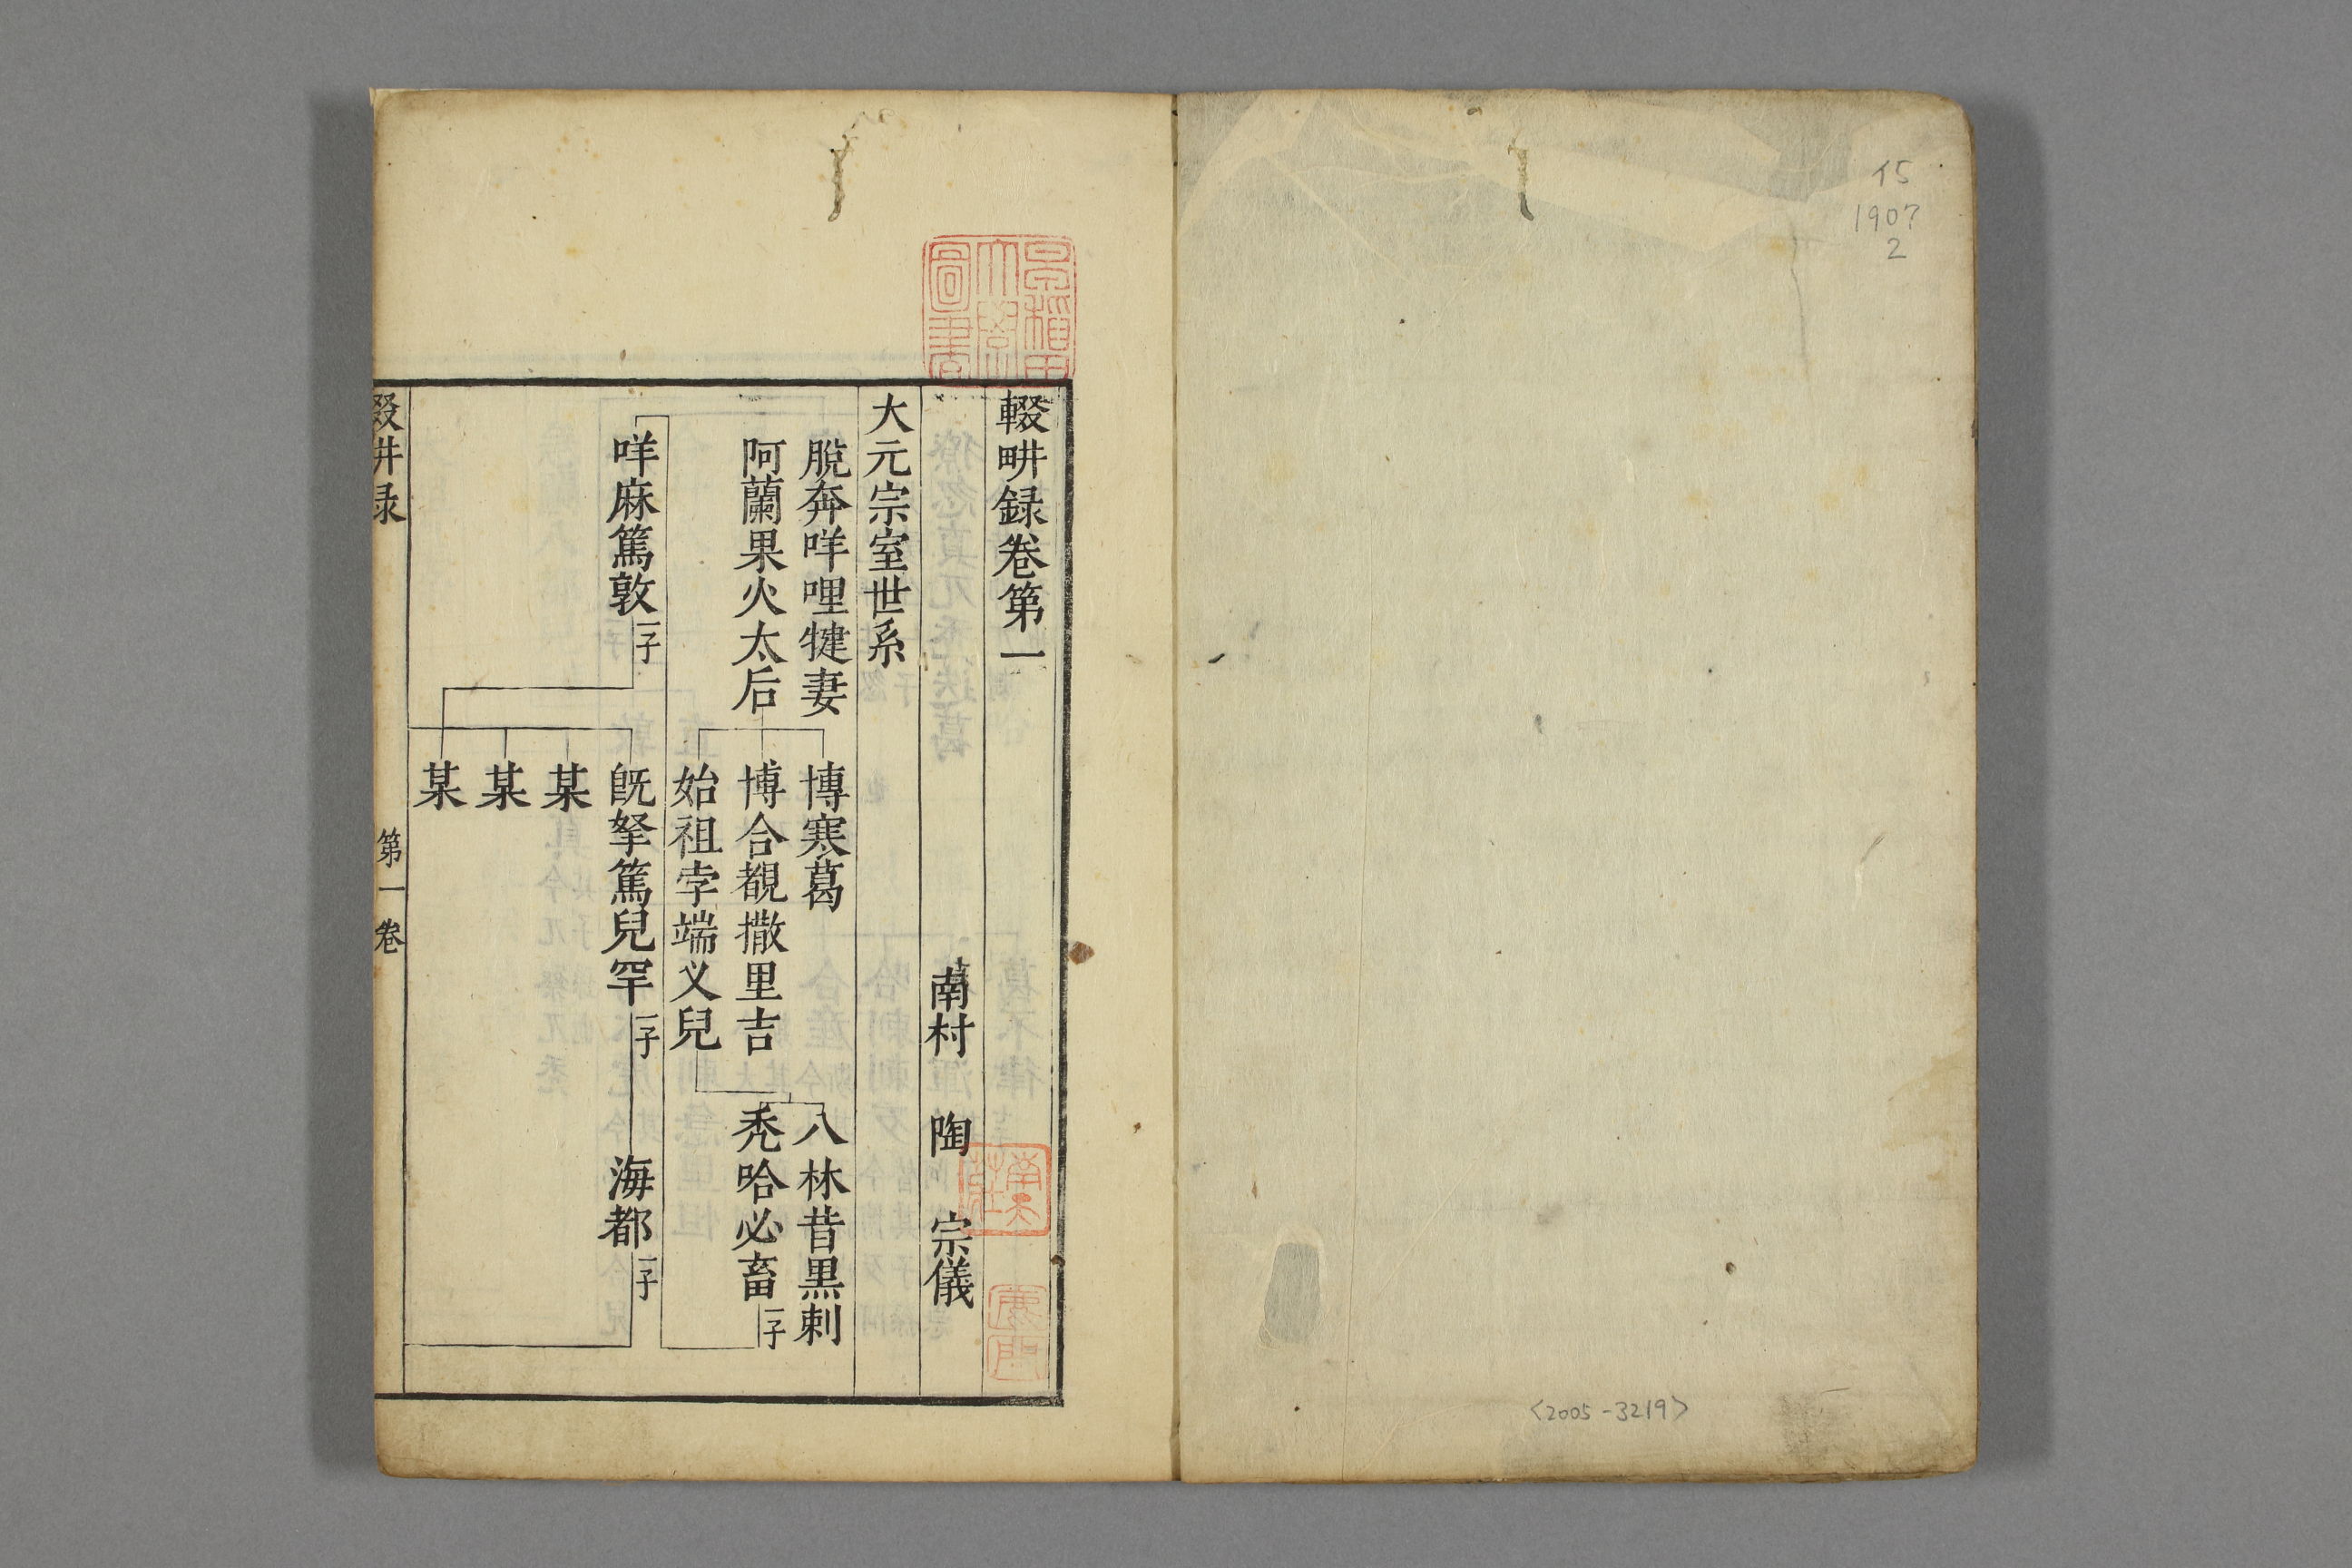 イ5
1907
2
<2005-3219>
早稲田
大學
圖書
輟畊録卷第一
南村 陶 宗儀
大元宗室世系
脫奔咩哩犍妻
阿蘭果火太后
博寒葛
博合覩撒里吉
始祖孛端义兒
八林昔黒剌
禿哈必畜 一子
咩麻篤敦 一子
旣拏篤兒罕 一子
海都 一子
某
某
某
輟畊録 第一卷